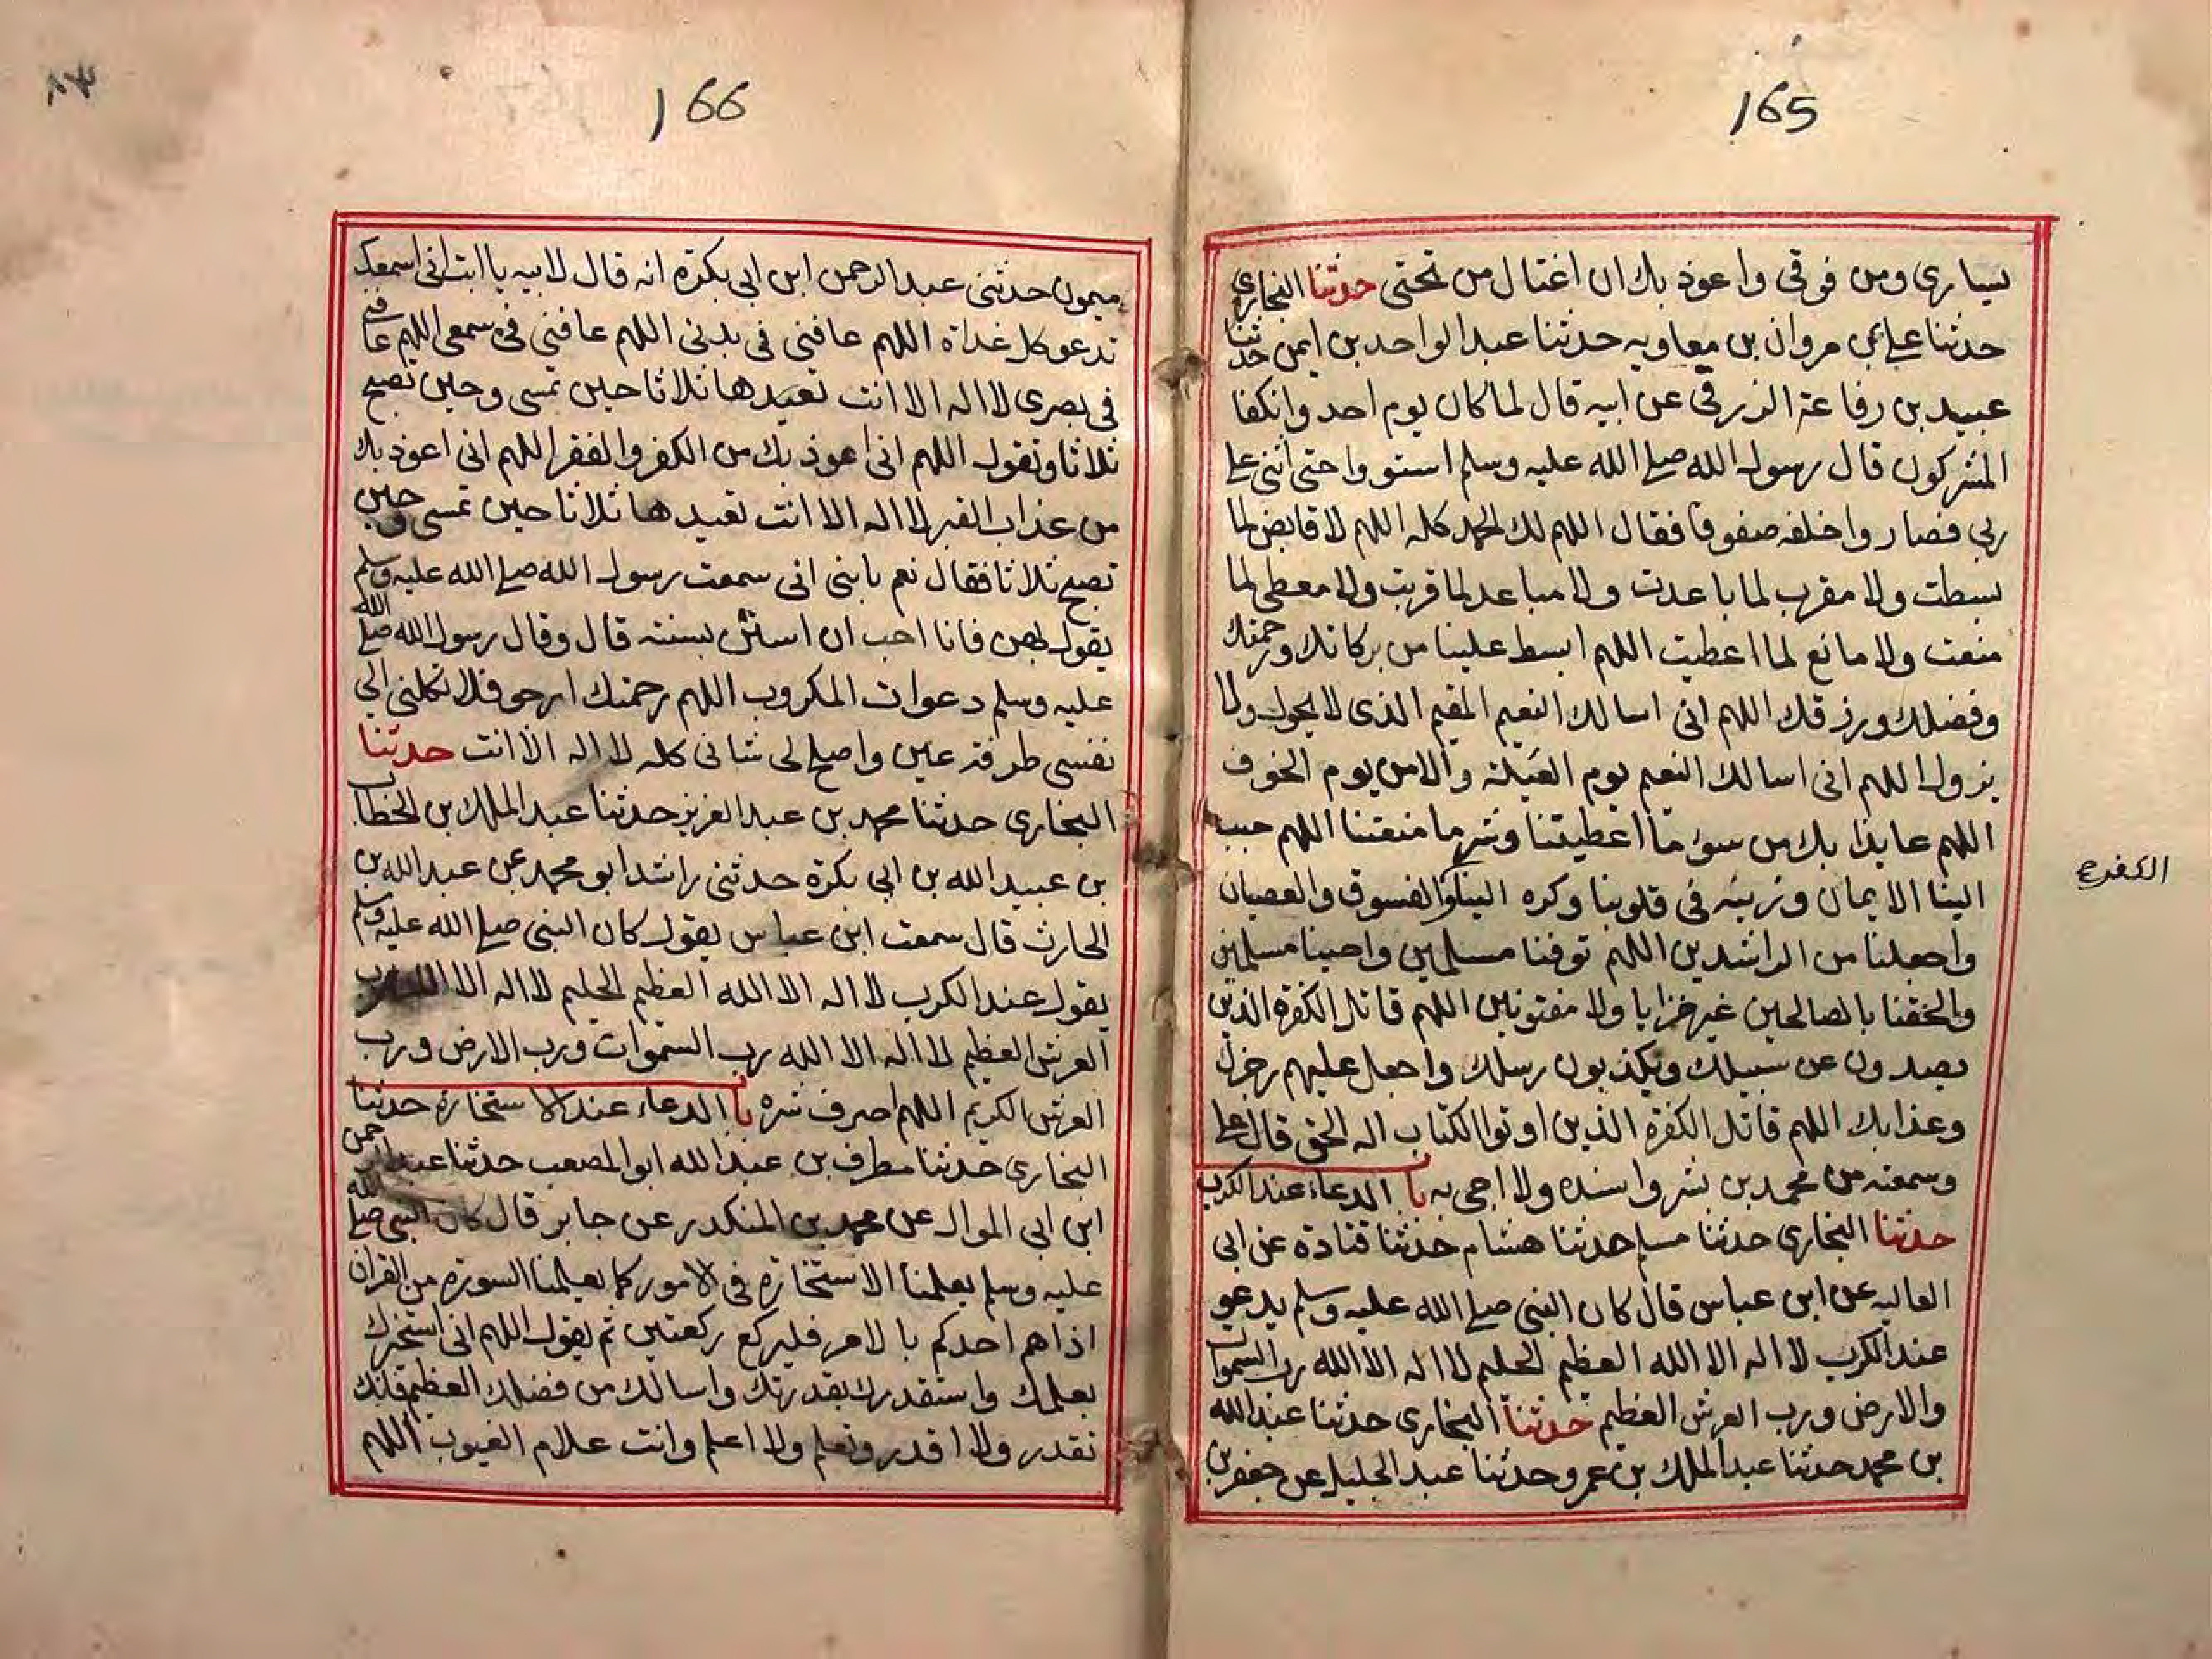 165
يسارى ومن فوقى واعوذ بك ان اغتال من تحتى حدثنا البخارى
حدثنا على بن مروان بن معاويه حدثنا عبد الواحد بن ايمن حدثنا
عبيد بن رفاعة الزرقى عن ابيه قال لما كان يوم احد وانكفا
المشركون قال رسول الله صلى الله عليه وسلم استووا حتى اثنى على
ربى فصاروا خلفه صفوفا فقال اللهم لك الحمد كله اللهم لا قابض لما
بسطت ولا مقرب لما باعدت ولا مباعد لما قربت ولا معطى لما
منعت ولا مانع لما اعطيت اللهم ابسط علينا من بركاتك ورحمتك
وفضلك ورزقك اللهم انى اسالك النعيم المقيم الذى لا يحول ولا
يزول اللهم انى اسالك النعيم يوم العيلة والامن يوم الخوف
اللهم عايذا بك من سوء ما اعطيتنا وشر ما منعتنا اللهم حبب
الينا الايمان وزينه فى قلوبنا وكره الينا والفسوق والعصيان
الكفر صح
واجعلنا من الراشدين اللهم توفنا مسلمين واحينا مسلمين
والحقنا بالصالحين غير خزايا ولا مفتونين اللهم قاتل الكفرة الذين
يصدون عن سبيلك ويكذبون رسلك واجعل عليهم رجزك
وعذابك اللهم قاتل الكفرة الذين اوتوا الكتاب اله الحق قال على
وسمعته من محمد بن بشر واسنده ولا اجى به با الدعاء عند الكرب
حدثنا البخارى حدثنا مسلم حدثنا هشام حدثنا قتادة عن ابى
العاليه عن ابن عباس قال كان النبى صلى الله عليه وسلم يدعو
عند الكرب لا اله الا الله العظيم الحليم لا اله الا الله رب السموات
والارض ورب العرش العظيم حدثنا البخارى حدثنا عبد الله
بن محمد حدثنا عبد الملك بن عمرو حدثنا عبد الجليل عن جعفر بن
166
ميمون حدثنى عبد الرحمن ابن ابى بكرة انه قال لابيه يا ابت انى اسمعك
تدعو كل غداة اللهم عافنى فى بدنى اللهم عافنى فى سمعى اللهم عافنى
فى بصرى لا اله الا انت تعيدها ثلاثا حين تمسى وحين تصبح
ثلاثا وتقول اللهم انى اعوذ بك من الكفر والفقر اللهم انى اعوذ بك
من عذاب القبر لا اله الا انت تعيدها ثلاثا حين تمسى وحين
تصبح ثلاثا فقال نعم يا بنى انى سمعت رسول الله صلى الله عليه وسلم
يقول بهن فانا احب ان استن بسنته قال وقال رسول الله صلى الله
عليه وسلم دعوات المكروب اللهم رحمتك ارجو فلا تكلنى الى
نفسى طرفة عين واصلح لى شانى كله لا اله الا انت حدثنا
البخارى حدثنا محمد بن عبد العزيز حدثنا عبد الملك بن الخطاب
بن عبيد الله بن ابى بكرة حدثنى راشد ابو محمد عن عبد الله بن
الحارث قال سمعت ابن عباس يقول كان النبى صلى الله عليه وسلم
يقول عند الكرب لا اله الا الله العظيم الحليم لا اله الا الله رب
العرش العظيم لا اله الا الله رب السموات ورب الارض ورب
العرش الكريم اللهم اصرف شره با الدعاء عند الاستخارة حدثنا
البخارى حدثنا مطرف بن عبد الله ابو المصعب حدثنا عبد الرحمن
ابن ابى الموال عن محمد بن المنكدر عن جابر قال كان النبى صلى الله
عليه وسلم يعلمنا الاستخارة فى الامور كما يعلمنا السورة من القران
اذا هم احدكم بالامر فليركع ركعتين ثم يقول اللهم انى استخيرك
بعلمك واستقدرك بقدرتك واسالك من فضلك العظيم فانك
تقدر ولا اقدر وتعلم ولا اعلم وانت علام الغيوب اللهم